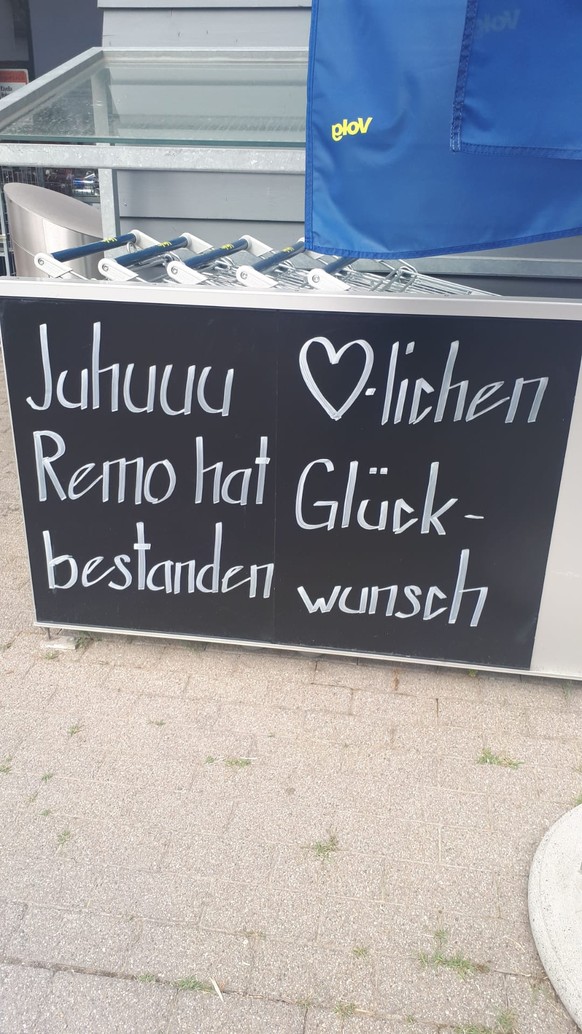 Volg
Juhuuu
Remo hat
bestanden
♡-lichen
Glück-
wunsch